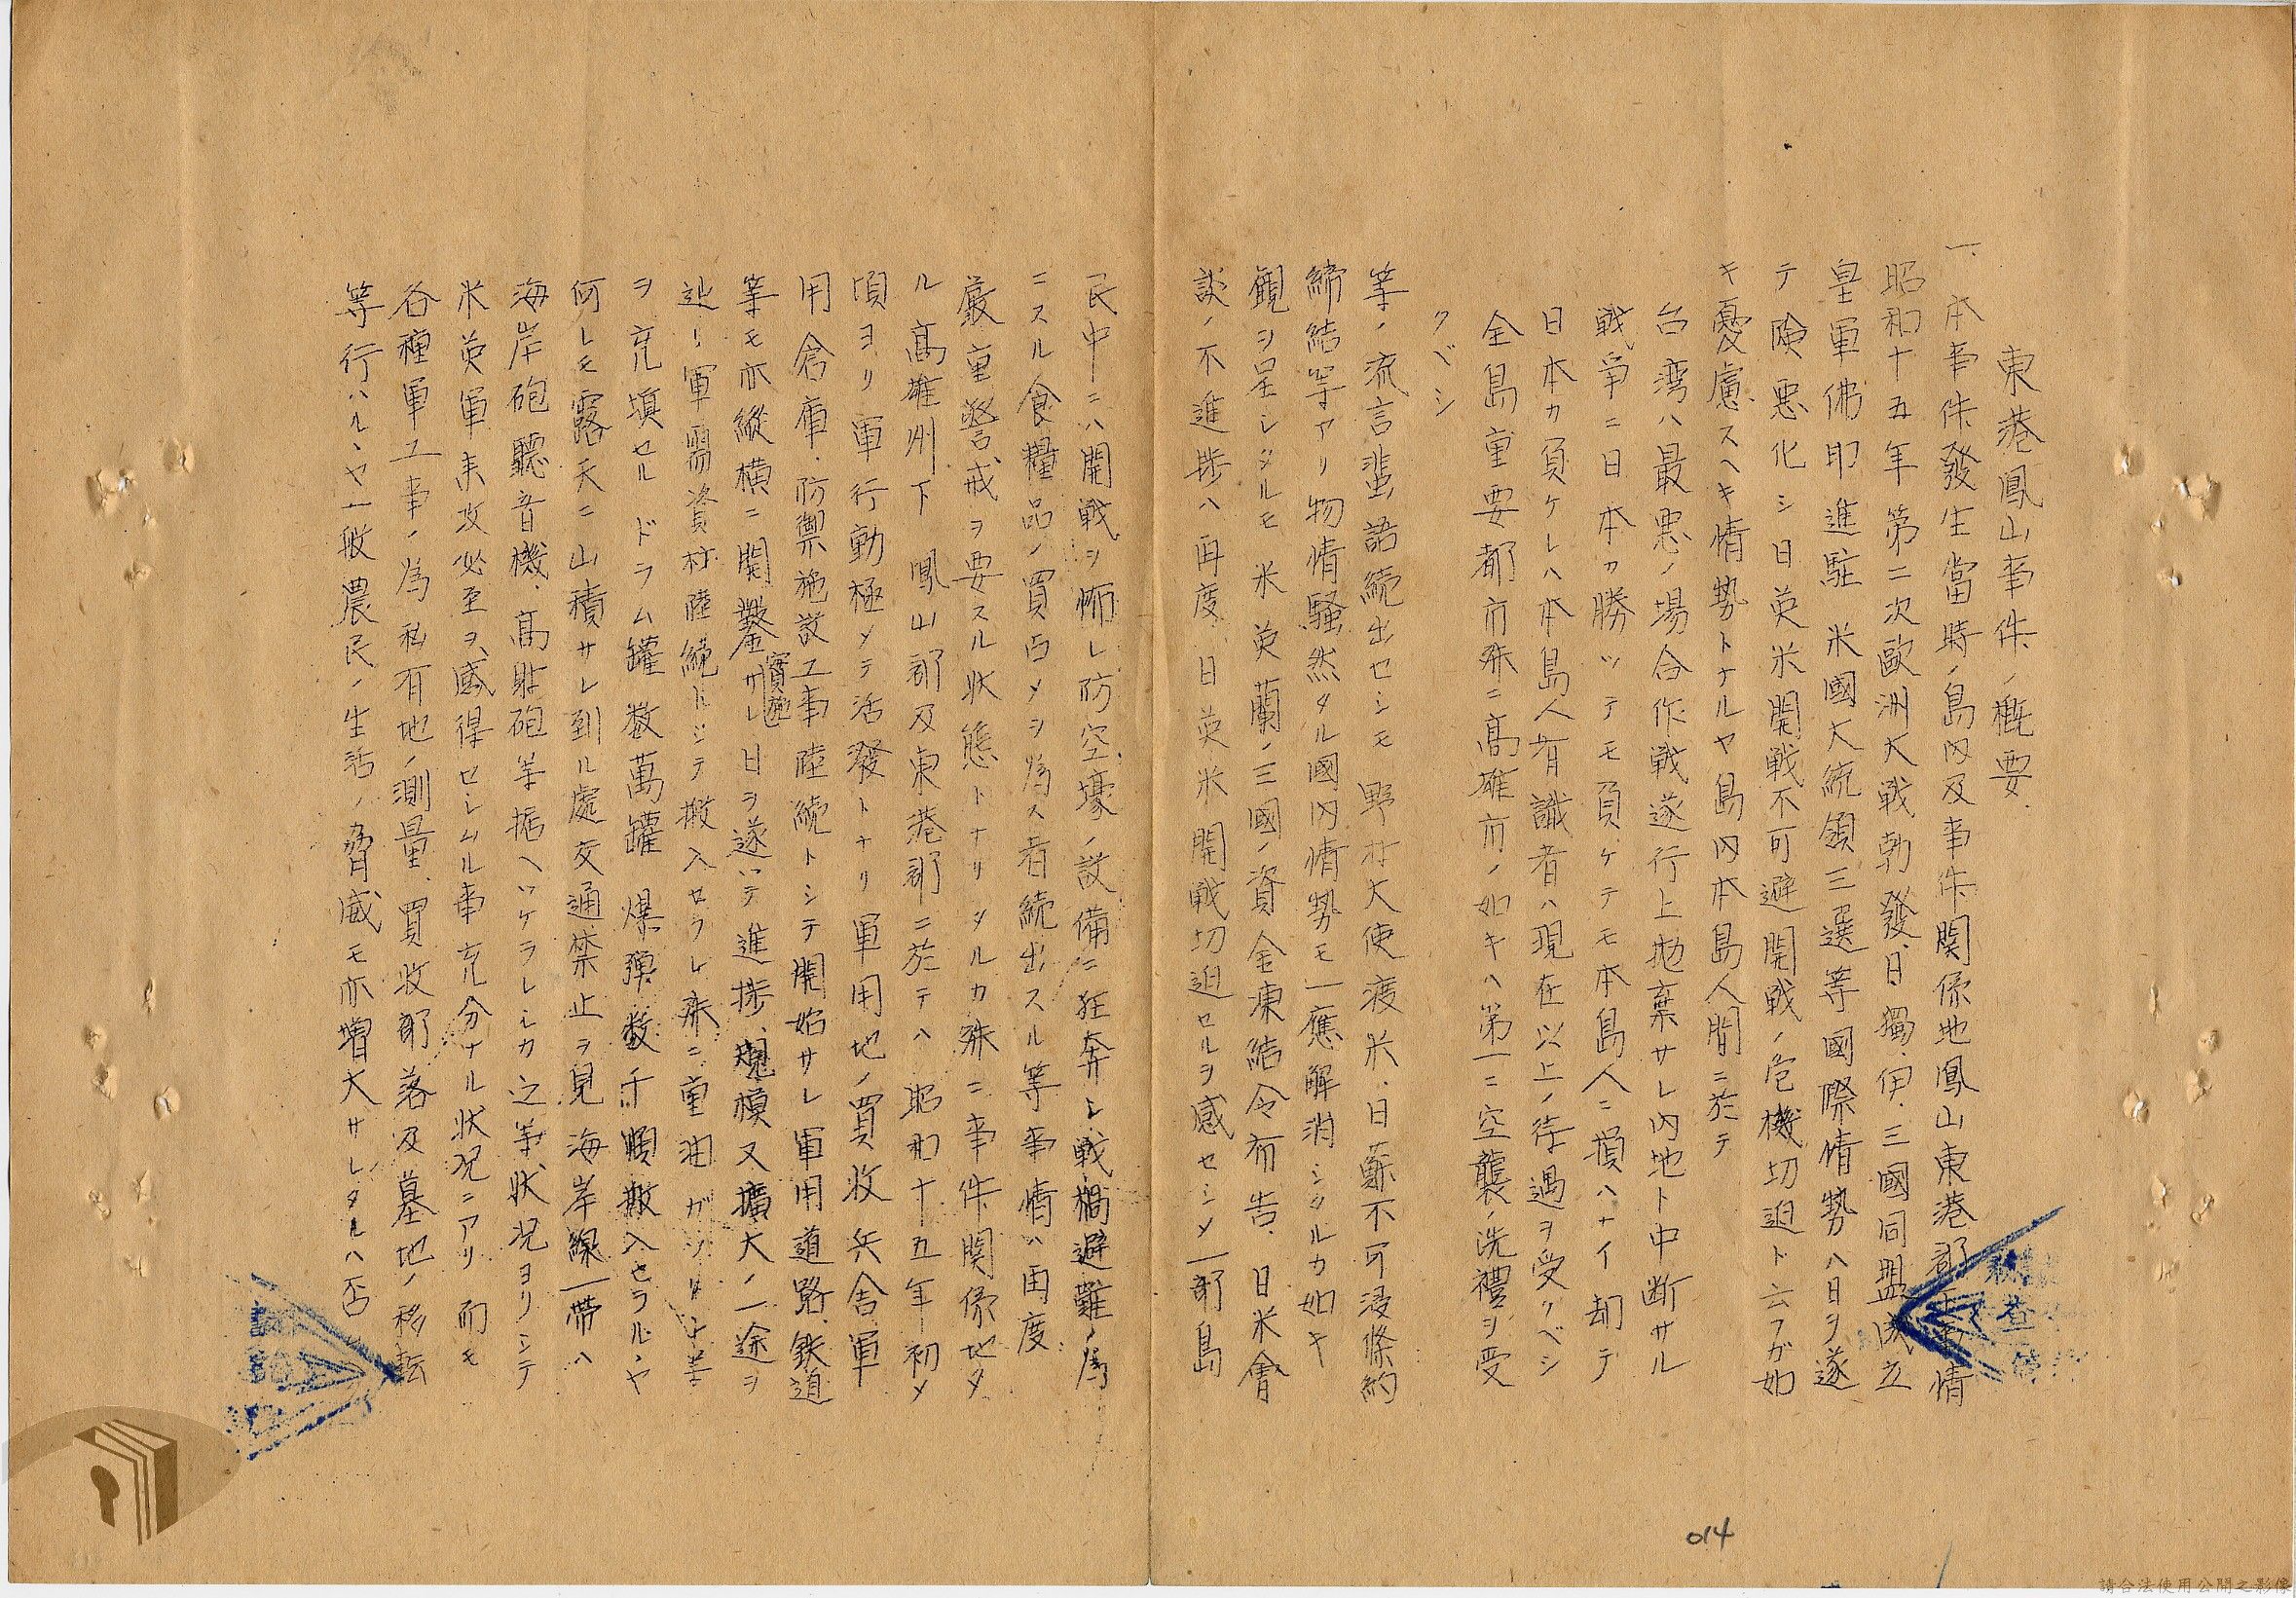 東港鳳山事件ノ概要
一、本事件發生當時ノ島内及事件関係地鳳山東港郡下ノ情
昭和十五年第二次歐洲大戦勃發、日獨、伊、三國同盟成立
皇軍佛印進駐 米國大統領三選等國際情勢ハ日ヲ遂
テ険悪化シ日英米開戦不可避開戦ノ危機切迫ト云フガ如
キ憂慮スヘキ情勢トナルヤ島内本島人間ニ於テ
台湾ハ最悪ノ場合作戦遂行上抛棄サレ内地ト中断サル
戦争ニ日本カ勝ツテモ負ケテモ本島人ニ損ハナイ却テ
日本カ負ケレハ本島人有識者ハ現在以上ノ待遇ヲ受クベシ
全島重要都市殊ニ高雄市ノ如キハ第一ニ空襲ノ洗禮ヲ受
クベシ
等ノ流言蜚語続出セシモ 野村大使渡米、日蘇不可浸條約
締結等アリ物情騒然タル國内情勢モ一應解消シタルカ如キ
観ヲ呈シタルモ 米英蘭ノ三國ノ資金凍結令布告、日米會
談ノ不進捗ハ再度、日英米開戦切迫セルヲ感セシメ一部島
民中ニハ開戦ヲ怖レ防空壕ノ設備ニ狂奔シ戦禍避難ノ為
ニスル食糧品ノ買占メヲ為ス者続出スル等事情ハ再度
厳重警戒ヲ要スル状態トナリタルカ殊ニ事件関係地タ
ル高雄州下 鳳山郡及東港郡ニ於テハ 昭和十五年初メ
頃ヨリ軍行動極メテ活發トナリ軍用地ノ買收兵舎軍
用倉庫、防禦施設工事陸続トシテ開始サレ軍用道路鉄道
等モ亦縦横ニ開鑿
實施
サレ日ヲ遂ッテ進捗、規模又擴大ノ一途ヲ
辿リ軍需資材陸続トシテ搬入セラレ殊ニ重油ガソリン等
ヲ充填セルドラム罐数萬罐 爆弾数千順搬入セラル、ヤ
何レモ露天ニ山積サレ到ル處交通禁止ヲ見海岸線一帯ハ
海岸砲聽音機、高射砲等据ヘツケラレシカ之等状况ヨリシテ
米英軍来攻必至ヲ感得セシムル事充分ナル状况ニアリ 而モ
各種軍工事ノ為私有地ノ測量、買收部落及墓地ノ移転
等行ハル、ヤ一般農民ノ生活ノ脅威モ亦増大サレタルハ否
014
請合法使用公開之影像